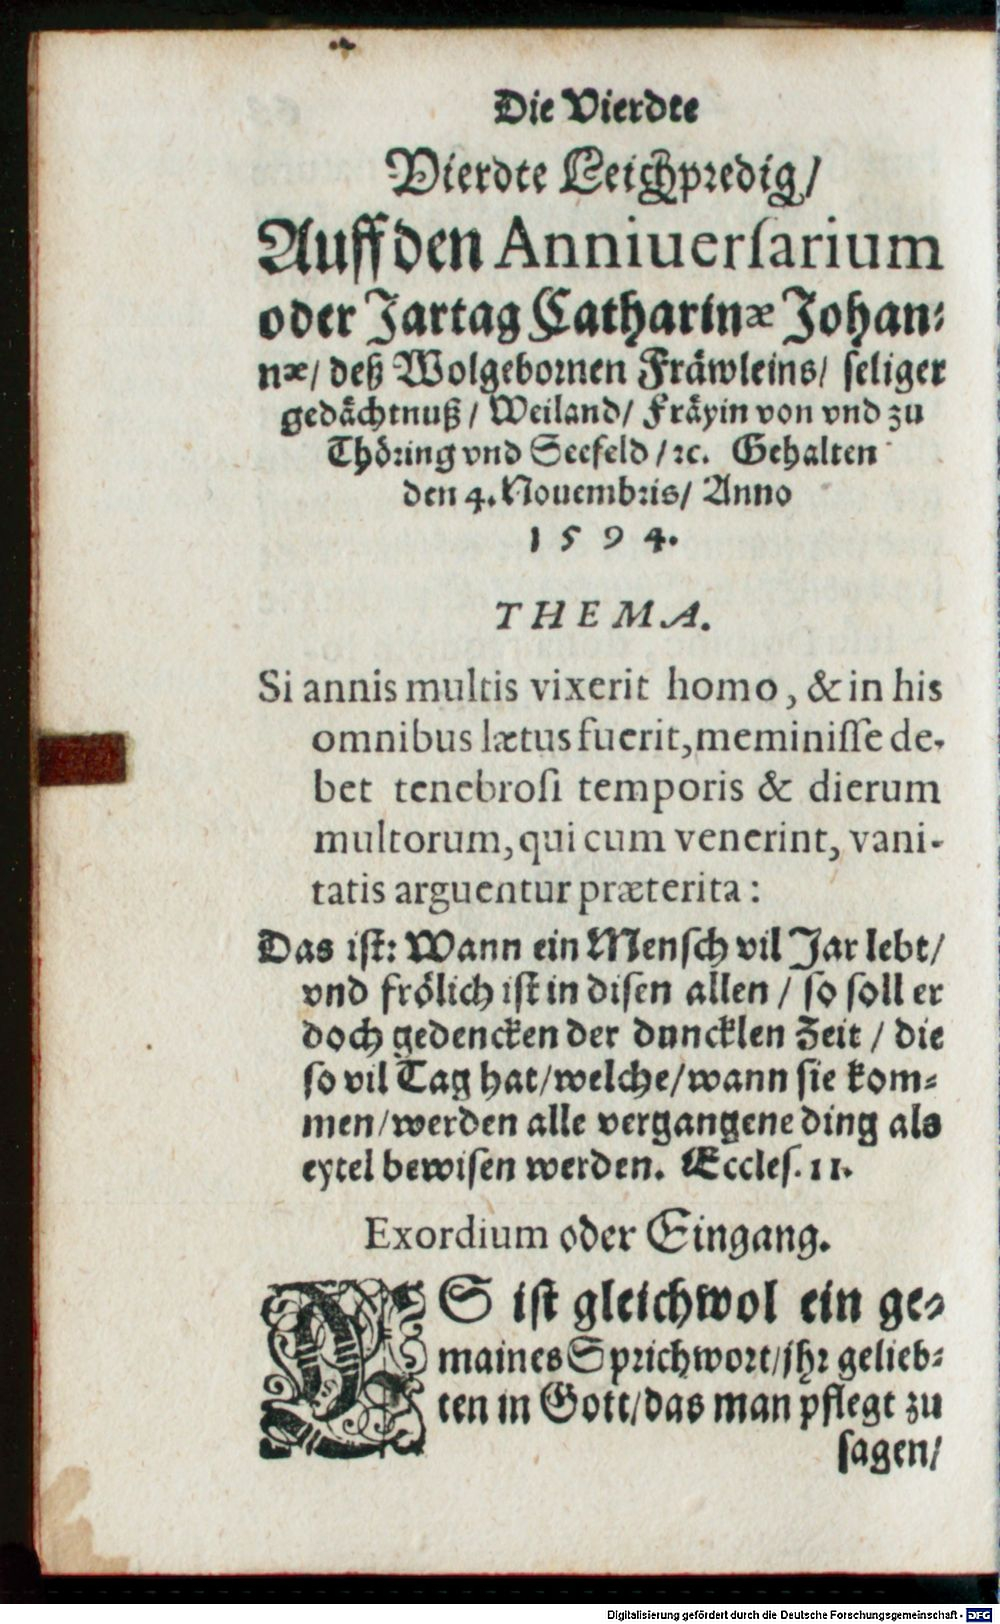 Die Vierdte
Vierdte Leichpredig/
Auff den Anniuerſarium
oder Jartag Catharinæ Johan-
næ/ deß Wolgebornen Fräwleins/ ſeliger
gedächtnuß/ Weiland/ Fräyin von vnd zu
Thöring vnd Seefeld/ ꝛc. Gehalten
den 4. Nouembris/ Anno
1594.
THEMA.
Si annis multis vixerit homo, & in his
omnibus lætus fuerit, meminiſſe de-
bet tenebroſi temporis & dierum
multorum, qui cum venerint, vani-
tatis arguentur præterita:
Das iſt: Wann ein Menſch vil Jar lebt/
vnd frölich iſt in diſen allen/ ſo ſoll er
doch gedencken der duncklen Zeit/ die
ſo vil Tag hat/ welche/ wann ſie kom-
men/ werden alle vergangene ding als
eytel bewiſen werden. Eccleſ. 11.
Exordium oder Eingang.
ES iſt gleichwol ein ge-
maines Sprichwort/ jhr gelieb-
ten in Gott/ das man pflegt zu
ſagen/
Digitalisierung gefördert durch die Deutsche Forschungsgemeinschaft - DFG